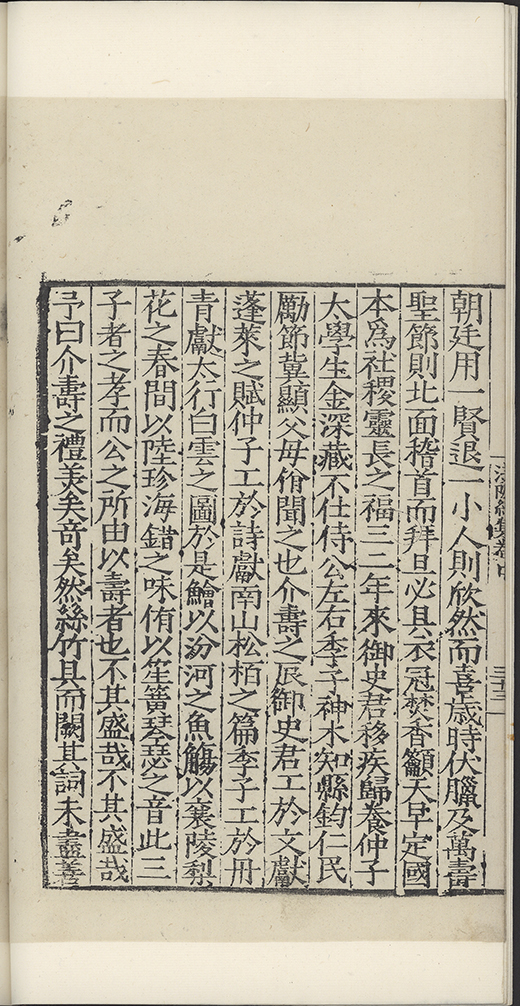 朝廷用一賢退一小人則欣然而喜歲時伏臘及萬壽
聖節則北面稽首而拜旦必具衣冠焚香籲天早定國
本爲社稷靈長之福三二年來御史君移疾歸養仲子
太學生金深藏不仕侍公左右季子神木知縣鈞仁民
勵節冀顯父母脩聞之也介壽之辰御史君工於文獻
蓬萊之賦仲子工於詩獻南山松栢之篇季子工於丹
青獻太行白雲之圖於是鱠以汾河之魚觴以襄陵梨
花之春間以陸珍海錯之味侑以笙簧琴瑟之音此三
子者之孝而公之所由以壽者也不其盛哉不其盛哉
予曰介壽之禮美矣竒矣然絲竹具而闕其詞未盡善
集卷中
三十三